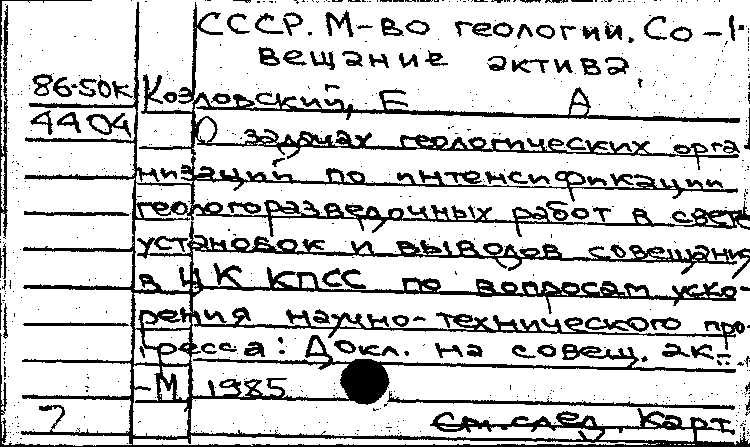 СССР. М-во геологии. Со-
вещание актива.
86-50К Козловский, Е А
4404 О задачах геологических орга
низаций по интенсификации
геологоразведочных работ в свете
установок и выводов совещания
в ЦК КПСС по вопросам уско-
рения научно-технического про-
гресса: Докл. на совещ. ак.
-М 1985
7 См. след. карт.